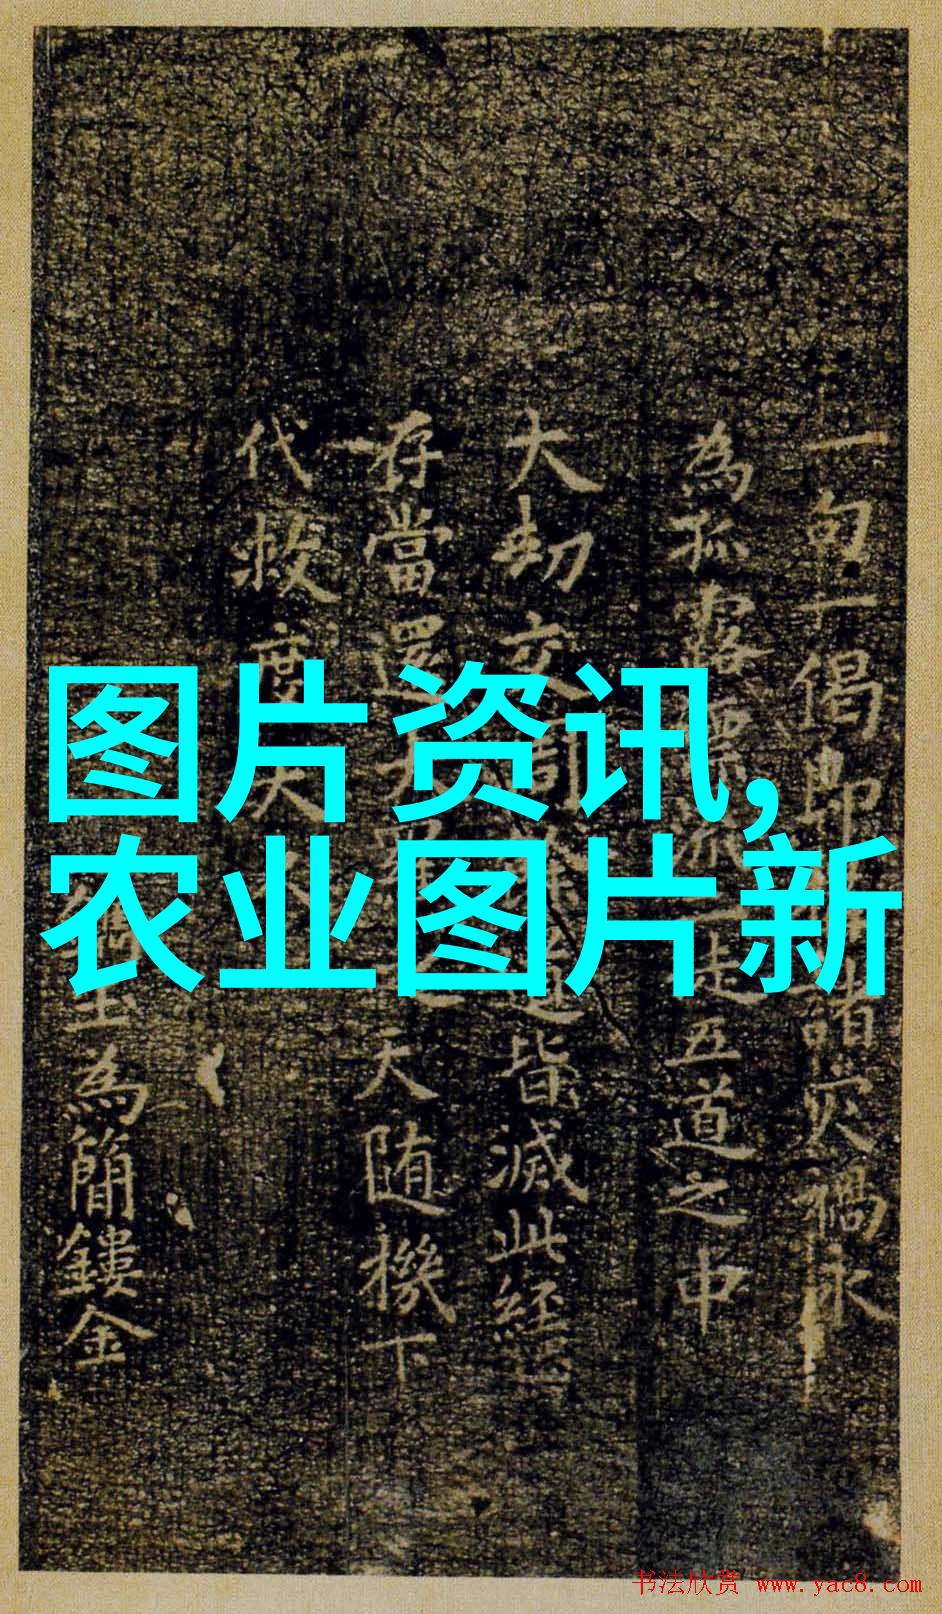 图片资讯,
农业图片新
一句一偈即諸災禍永
為孤露五道之中
大劫交周皆滅此經
存當還天随機下
代救度天
玉為簡鏤金
书法欣赏 www.yac8.com